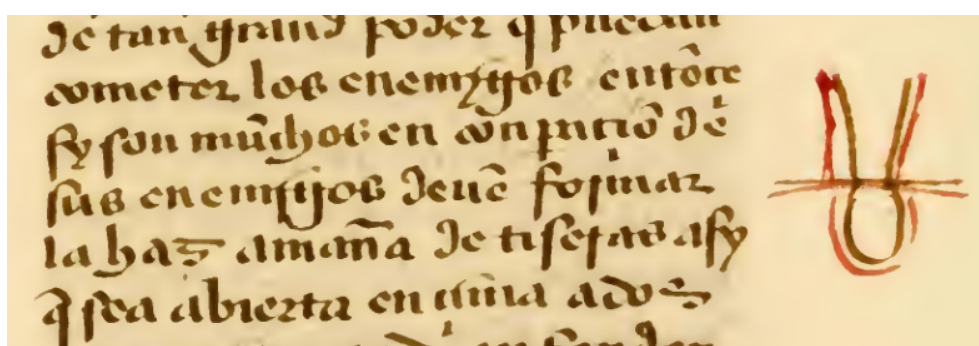 de tan grand poder q̃ puedan
cometer los enemygos entõce
sy son mũchos en cõnparaciõ de
sus enemigos deuẽ formar
la haz amañа de tiseras asy
q̃ sea abierta en çima a dos